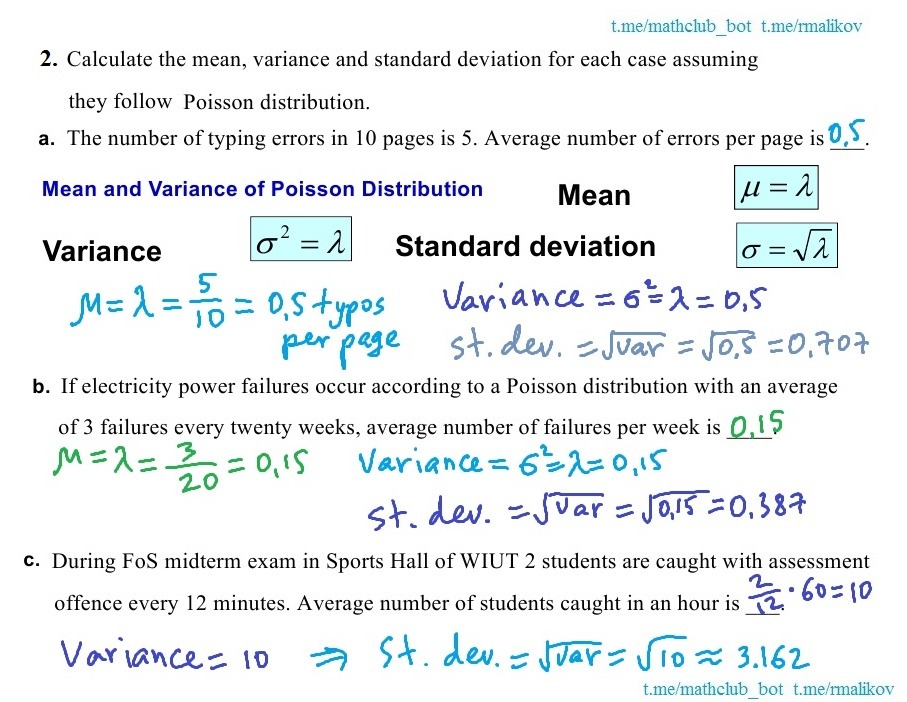 t.me/mathclub_bot t.me/rmalikov
2. Calculate the mean, variance and standard deviation for each case assuming
they follow Poisson distribution.
a. The number of typing errors in 10 pages is 5. Average number of errors per page is 0,5.
Mean and Variance of Poisson Distribution Mean μ = λ
Variance σ² = λ Standard deviation σ = √λ
μ = λ = 5/10 = 0,5 typos per page
Variance = σ² = λ = 0,5
st. dev. = √var = √0,5 = 0,707
b. If electricity power failures occur according to a Poisson distribution with an average
of 3 failures every twenty weeks, average number of failures per week is 0,15.
μ = λ = 3/20 = 0,15 Variance = σ² = λ = 0,15
st. dev. = √Var = √0,15 = 0,387
c. During FoS midterm exam in Sports Hall of WIUT 2 students are caught with assessment
offence every 12 minutes. Average number of students caught in an hour is 2/12 · 60 = 10.
Variance = 10 ⇒ St. dev. = √Var = √10 ≈ 3.162
t.me/mathclub_bot t.me/rmalikov